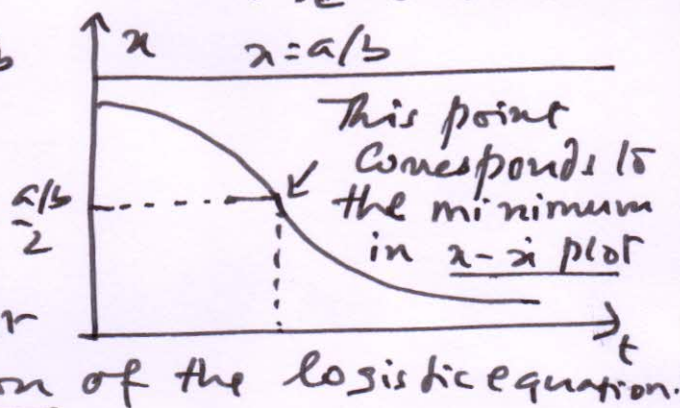 x x=a/b
This point
Corresponds to
a/b
2
the minimum
in x-ẋ plot
t
on of the logistic equation.